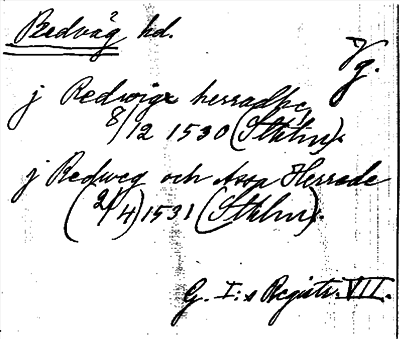 Redväg hd.
Vg.
j Redwigx herradhe
8/12 1530 (Sthlm).
j Redweg och Assa Herrade
(2/4) 1531 (Sthlm).
G. I:s Registr. VII.